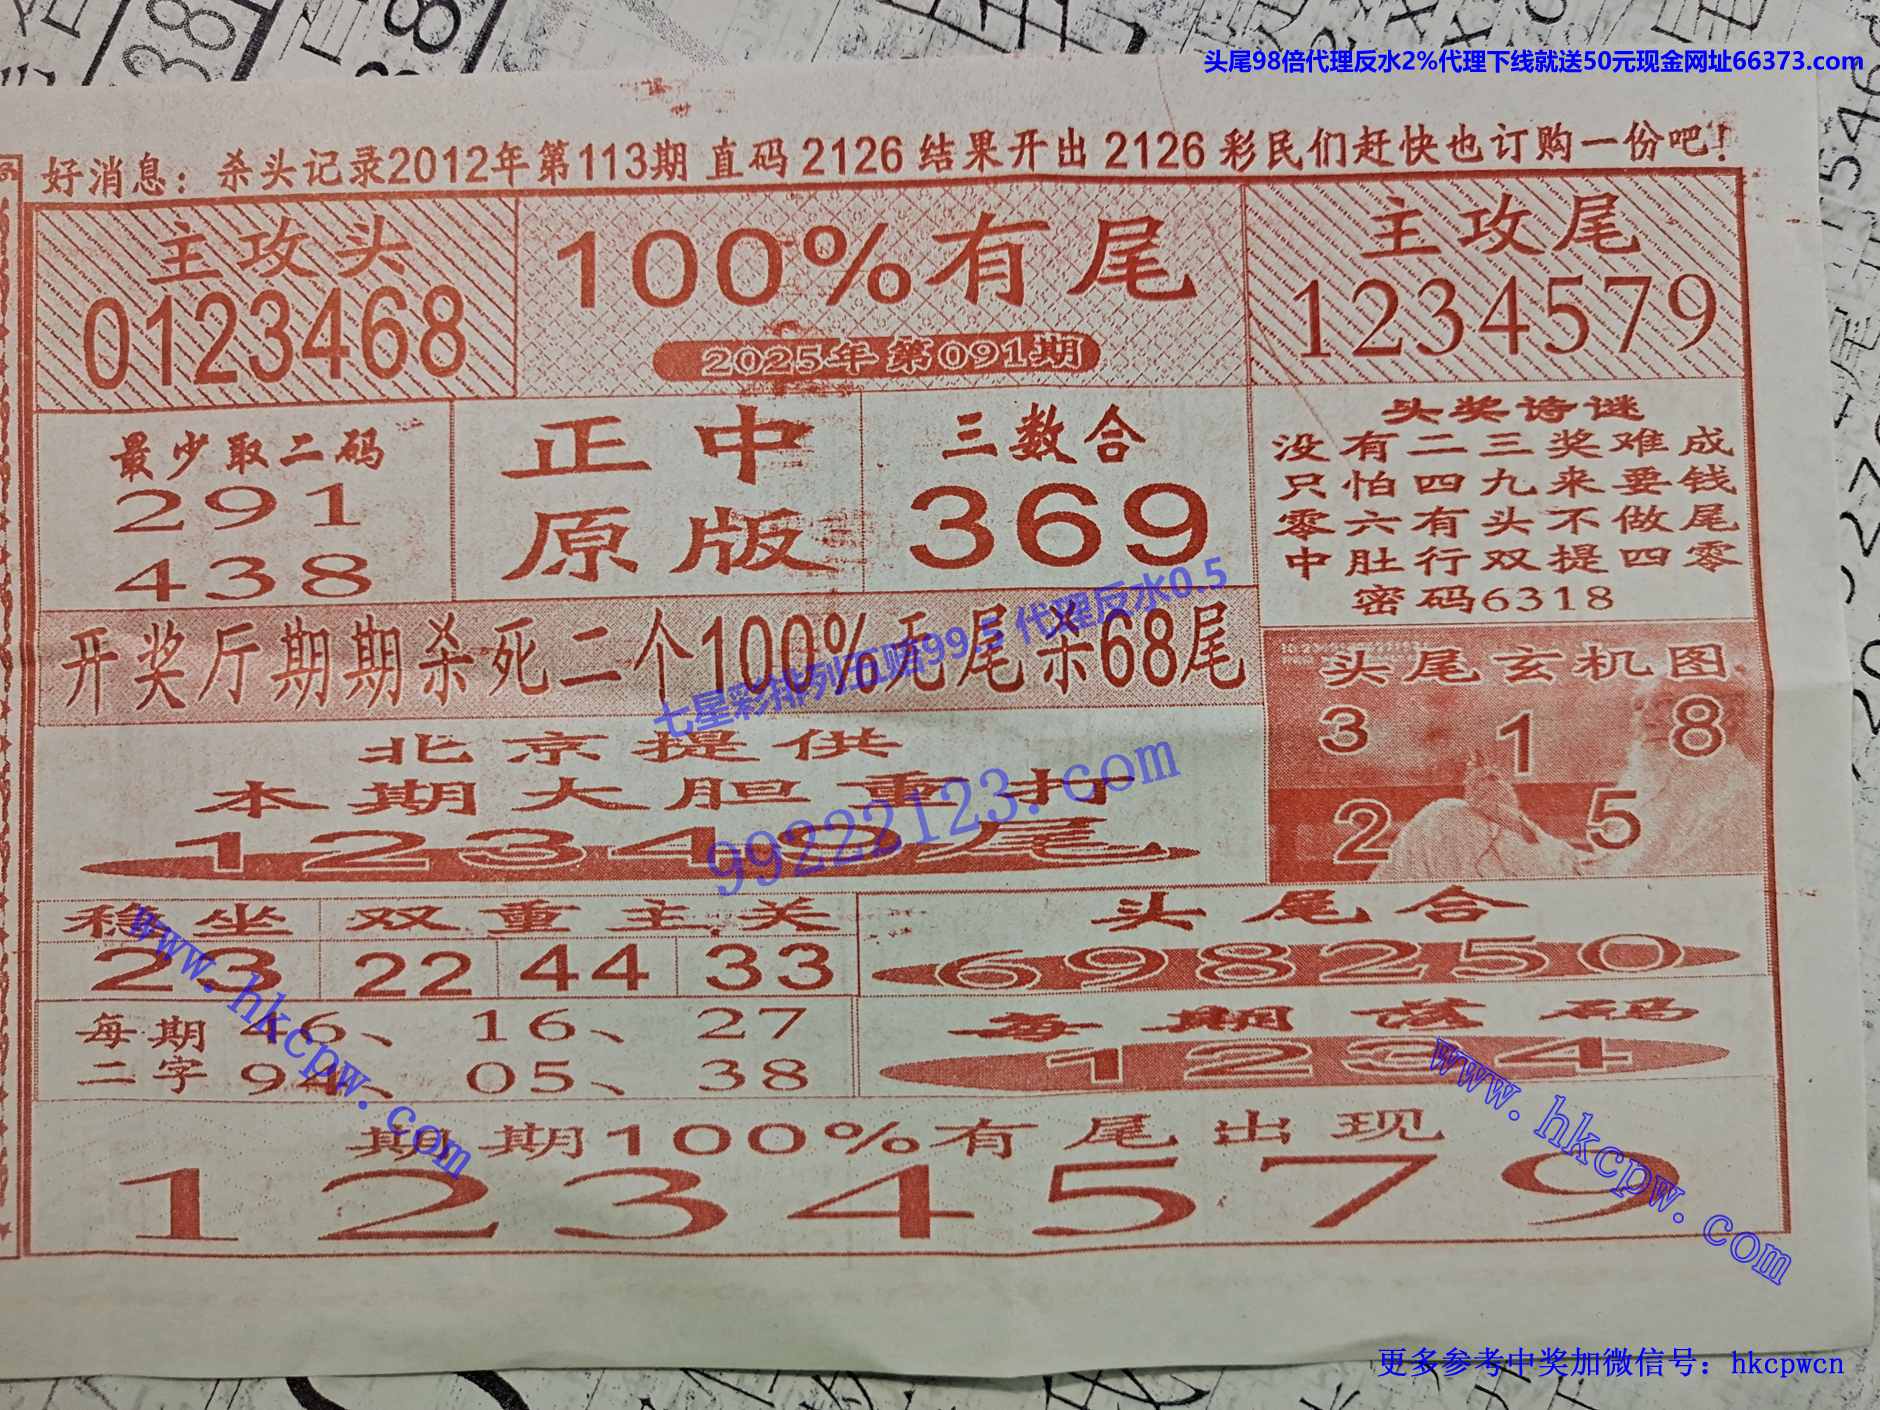 头尾98倍代理反水2%代理下线就送50元现金网址66373.com
好消息：杀头记录2012年第113期 直码 2126 结果开出 2126 彩民们赶快也订购一份吧！
主攻头
0123468
100%有尾
2025年第091期
主攻尾
1234579
最少取二码
291
438
正中
原版
三数合
369
头奖诗谜
没有二三奖难成
只怕四九来要钱
零六有头不做尾
中肚行双提四零
密码6318
开奖厅期期杀死二个100%无尾杀68尾
七星彩排列五赔99.5 代理反水0.5
头尾玄机图
3 1 8
2 5
北京提供
本期大胆重打
12349尾
99222123.com
稳坐
23
双重主关
22 44 33
头尾合
698250
每期二字
46、16、27
94、05、38
每期落码
1234
www.hkcpw.com
www.hkcpw.com
期期100%有尾出现
1234579
更多参考中奖加微信号：hkcpwcn